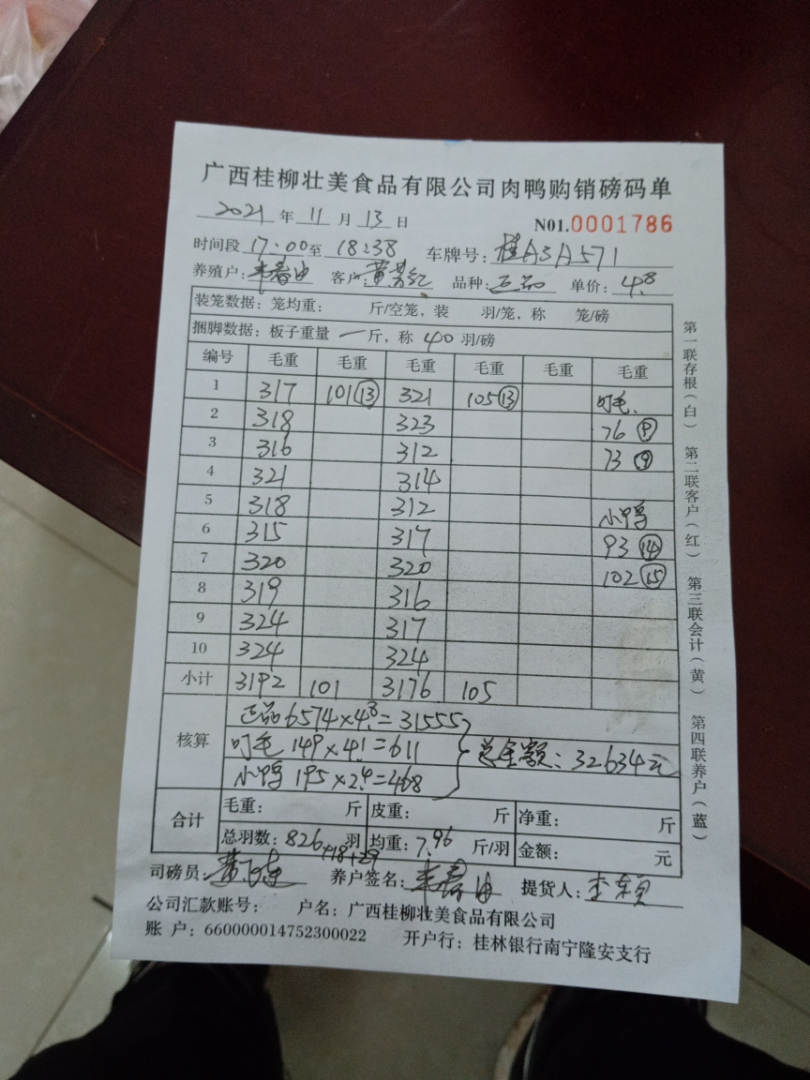 广西桂柳壮美食品有限公司肉鸭购销磅码单
2021年11月13日 N01.0001786
时间段17:00至18:38 车牌号:桂A3A571
养殖户: 客户:黄 品种:正品 单价:4.8
装笼数据:笼均重: 斤/空笼,装 羽/笼,称 笼/磅
捆脚数据:板子重量 一斤,称40羽/磅
编号 毛重 毛重 毛重 毛重 毛重 毛重
1 317 101⑬ 321 105⑬ 叮毛.
2 318 323 76⑨
3 316 312 73⑨
4 321 314
5 318 312 小鸭
6 315 317 93⑭
7 320 320 102⑮
8 319 316
9 324 317
10 324 324
小计 3192 101 3176 105
核算
正品6574×4.8=31555
叮毛149×4.1=611
小鸭195×2.4=468
总金额:32634元
合计
毛重: 斤 皮重: 斤 净重: 斤
总羽数:826羽 均重:7.96斤/羽 金额: 元
+18+29
司磅员: 养户签名: 提货人:李
公司汇款账号: 户名:广西桂柳壮美食品有限公司
账 户:660000014752300022 开户行:桂林银行南宁隆安支行
第一联存根(白) 第二联客户(红) 第三联会计(黄) 第四联养户(蓝)